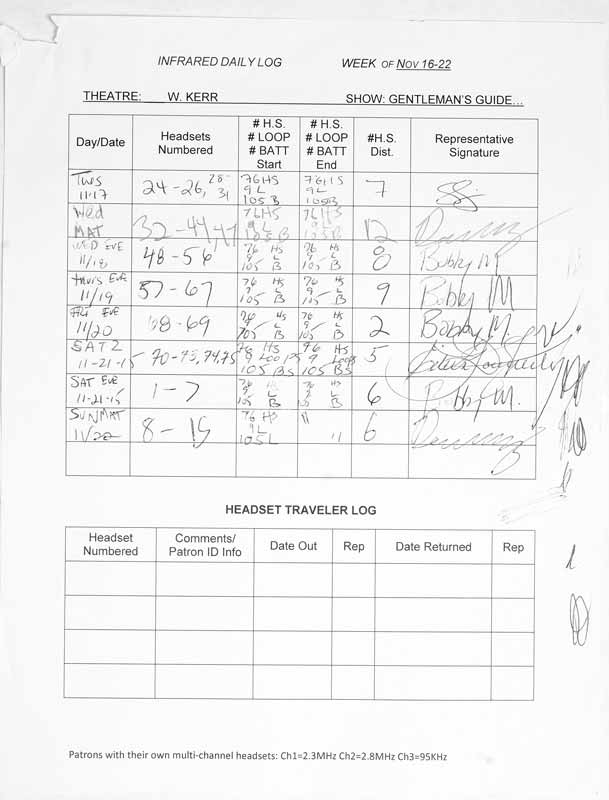 INFRARED DAILY LOG WEEK OF NOV 16-22
THEATRE: W. KERR SHOW: GENTLEMAN'S GUIDE...
Day/Date Headsets Numbered # H.S. # LOOP # BATT Start # H.S. # LOOP # BATT End #H.S. Dist. Representative Signature
Tues 11/17 24-26, 28-31 76HS 9L 105B 76HS 9L 105B 7
Wed MAT 32-44,47 76HS 9L 105B 76HS 9L 105B 12
WED EVE 11/18 48-56 76 HS 9 L 105 B 76 HS 9 L 105 B 8 Bobby M
Thurs Eve 11/19 57-67 76 HS 9 L 105 B 76 HS 9 L 105 B 9 Bobby M
Fri Eve 11/20 68-69 76 HS 9 L 105 B 76 HS 9 L 105 B 2 Bobby M.
SAT 2 11-21-15 70-73, 74,75 76 HS 9 Loops 105 BS 76 HS 9 Loops 105 BS 5
SAT EVE 11-21-15 1-7 76 HS 9 L 105 B 76 HS 9 L 105 B 6 Bobby M.
SUN MAT 11/22 8-15 76 HS 9L 105L " " 6
HEADSET TRAVELER LOG
Headset Numbered Comments/ Patron ID Info Date Out Rep Date Returned Rep
Patrons with their own multi-channel headsets: Ch1=2.3MHz Ch2=2.8MHz Ch3=95KHz